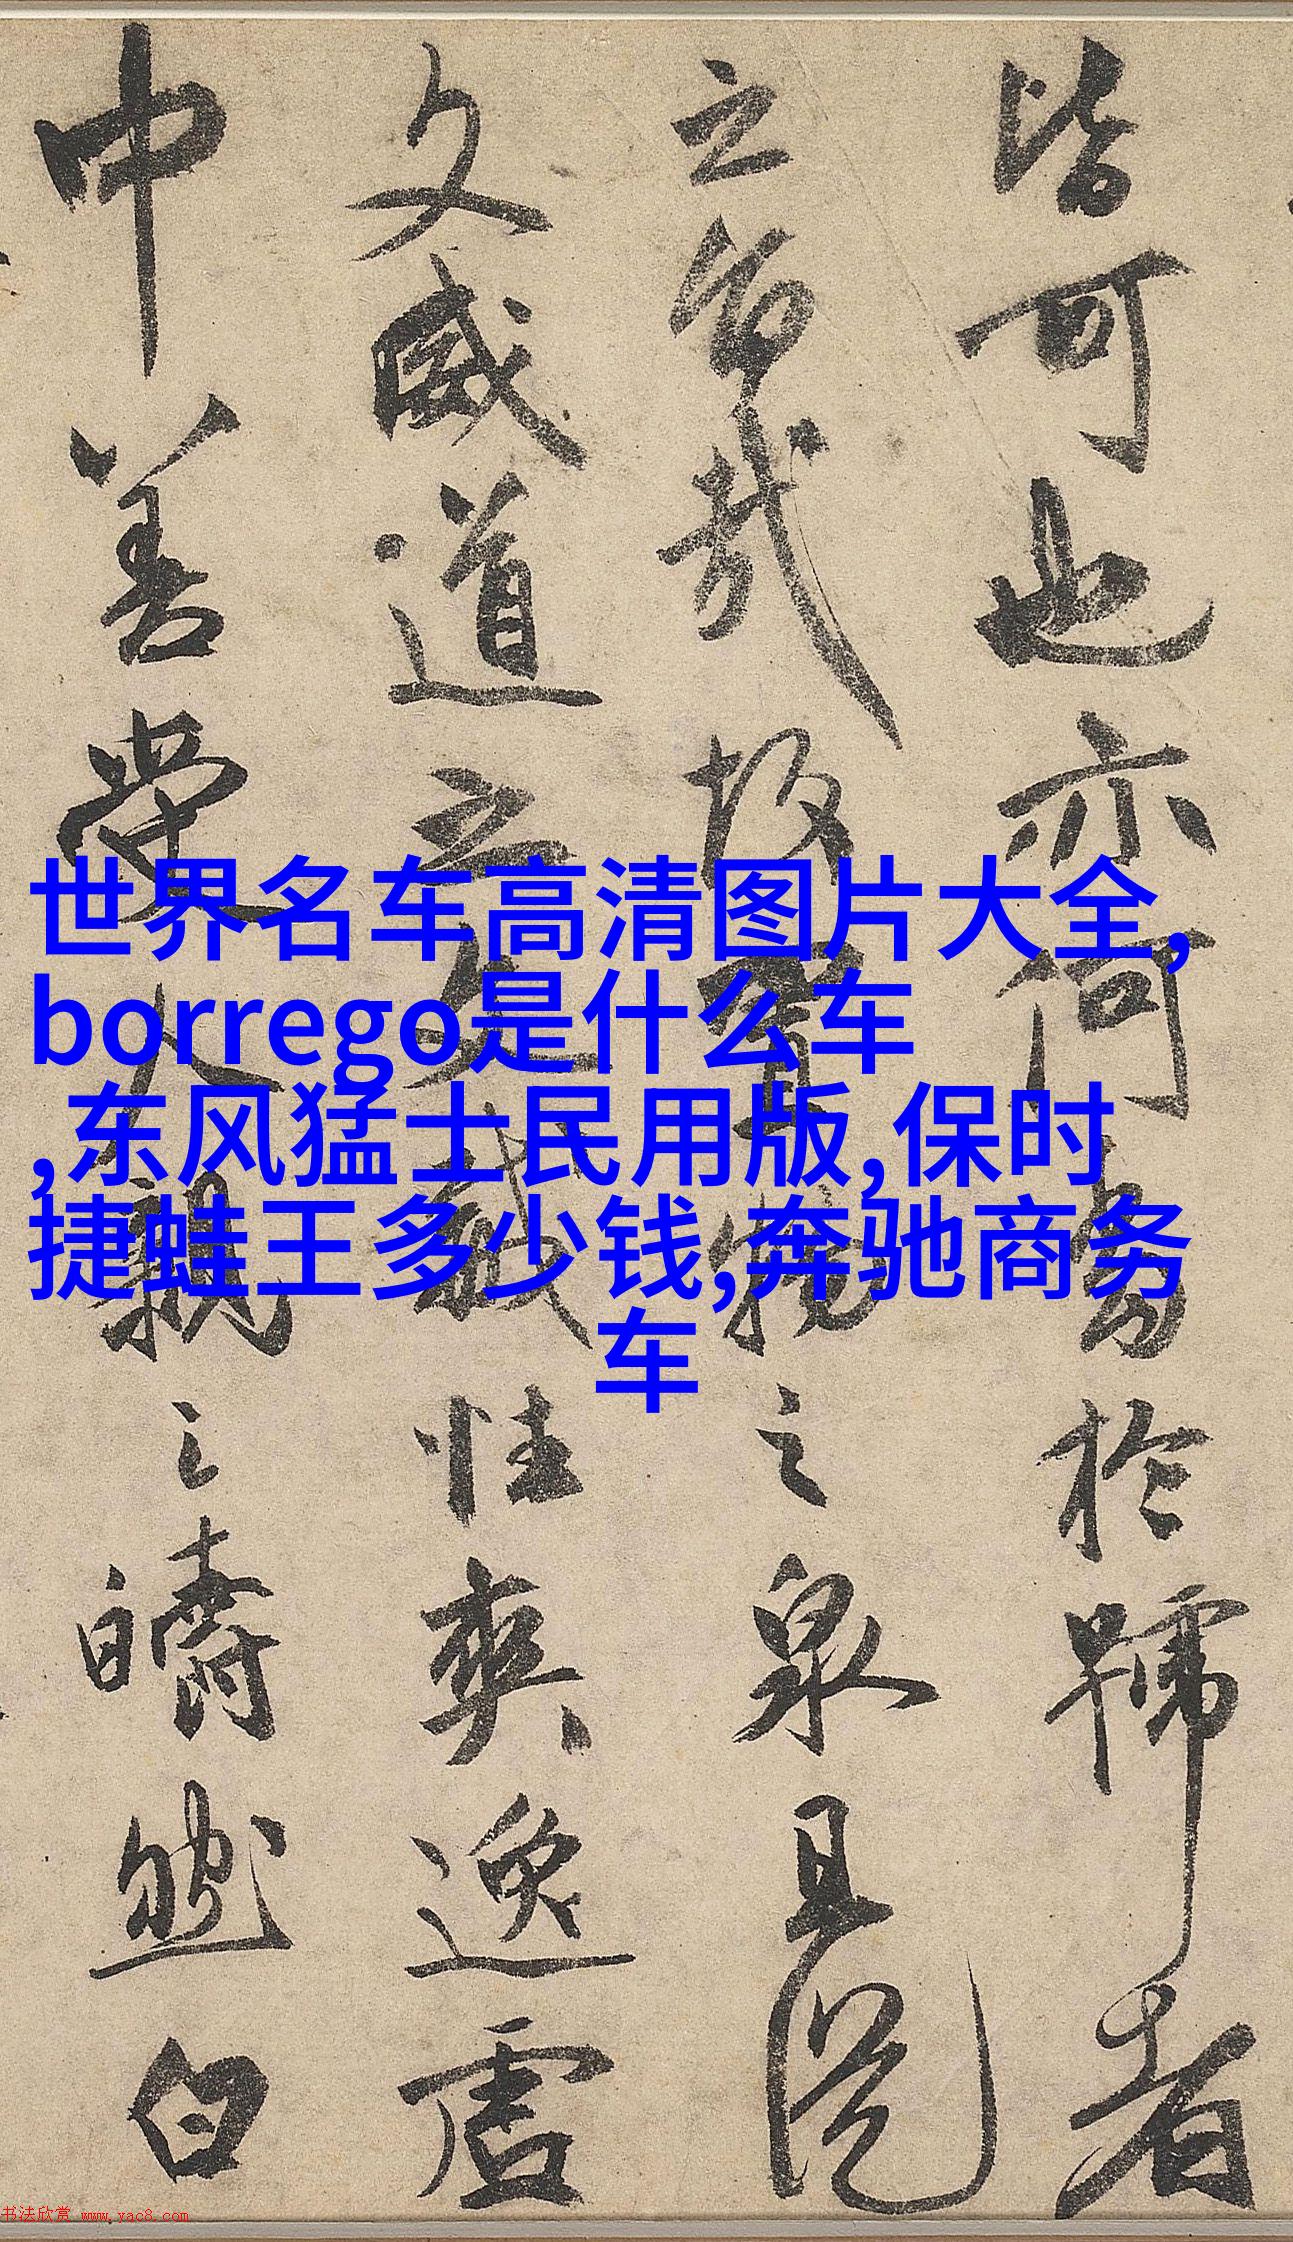 皆可也亦何务於歸者
之留哉故寶玩之泉且從
文威道之文武性爽逸虛
中善愛人親之疇然白
世界名车高清图片大全,
borrego是什么车
,东风猛士民用版,保时
捷蛙王多少钱,奔驰商务
车
书法欣赏 www.yac8.com